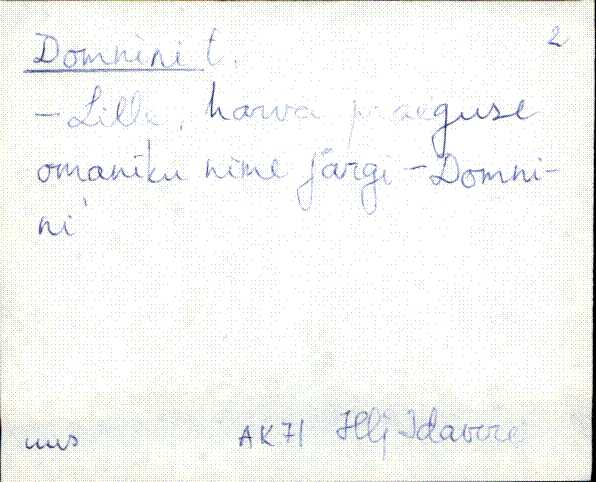 Domnini t. 2
- Lille, harva praeguse
omaniku nime järgi - Domni-
ni
uus AK71 Hlj Idavere